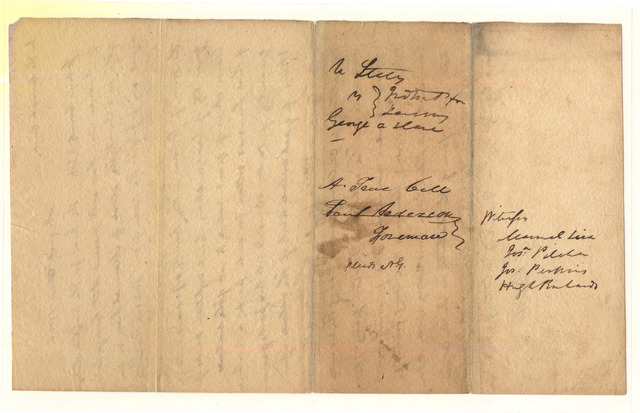 U States
vs } Indictmt for
Larceny
George a slave
A True Bill
Paul Anderson }
Foreman
pleads N.G.
Witnesses
Manuel Lisa
Jos. Pilcher
Jos. Perkins
Hugh Richards